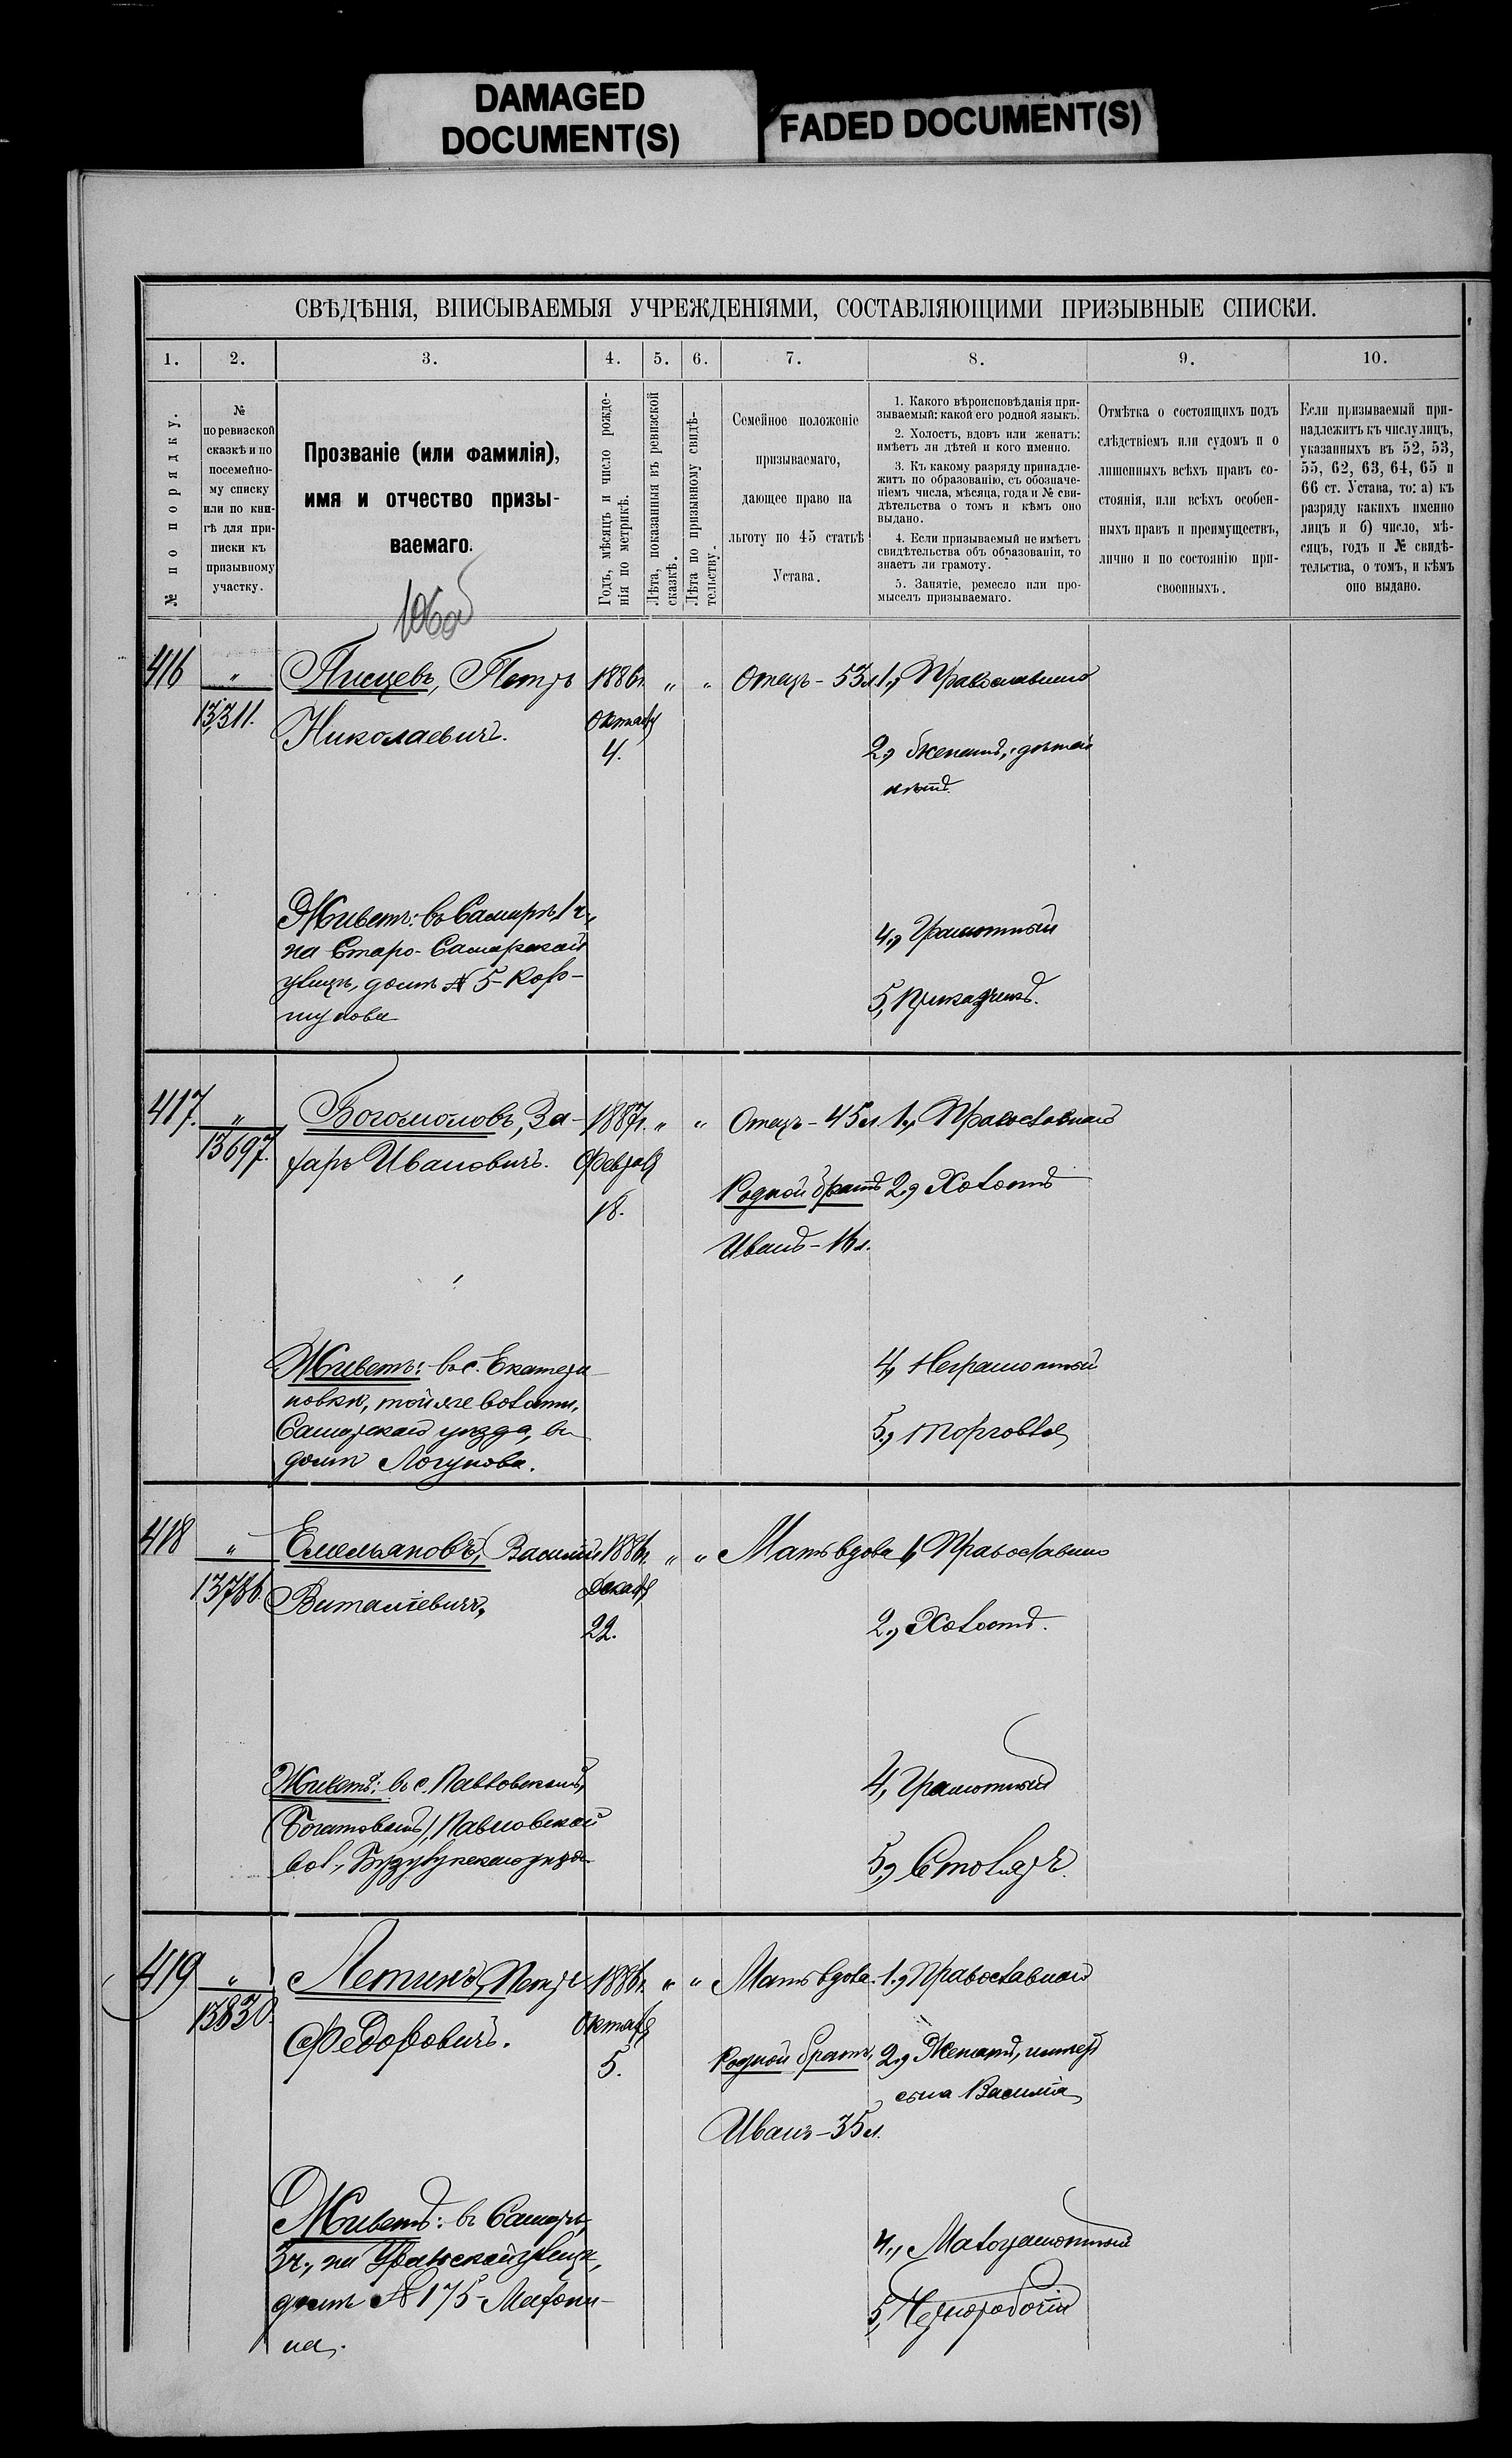 DAMAGED
DOCUMENT(S)
FADED DOCUMENT(S)
СВѢДѢНІЯ, ВПИСЫВАЕМЫЯ УЧРЕЖДЕНІЯМИ, СОСТАВЛЯЮЩИМИ ПРИЗЫВНЫЕ СПИСКИ.
1. 2. 3. 4. 5. 6. 7. 8. 9. 10.
№ по порядку.
№
по ревизской
сказкѣ и по
посемейно-
му списку
или по кни-
гѣ для при-
писки къ
призывному
участку.
Прозваніе (или фамилія),
имя и отчество призы-
ваемаго.
Годъ, мѣсяцъ и число рожде-
нія по метрикѣ.
Лѣта, показанныя въ ревизской
сказкѣ.
Лѣта по призывному свидѣ-
тельству.
Семейное положеніе
призываемаго,
дающее право на
льготу по 45 статьѣ
Устава.
1. Какого вѣроисповѣданія при-
зываемый: какой его родной языкъ.
2. Холостъ, вдовъ или женатъ:
имѣетъ ли дѣтей и кого именно.
3. Къ какому разряду принадле-
житъ по образованію, съ обозначе-
ніемъ числа, мѣсяца, года и № сви-
дѣтельства о томъ и кѣмъ оно
выдано.
4. Если призываемый не имѣетъ
свидѣтельства объ образованіи, то
знаетъ ли грамоту.
5. Занятіе, ремесло или про-
мыселъ призываемаго.
Отмѣтка о состоящихъ подъ
слѣдствіемъ или судомъ и о
лишенныхъ всѣхъ правъ со-
стоянія, или всѣхъ особен-
ныхъ правъ и преимуществъ,
лично и по состоянію при-
своенныхъ.
Если призываемый при-
надлежитъ къ числу лицъ,
указанныхъ въ 52, 53,
55, 62, 63, 64, 65 и
66 ст. Устава, то: а) къ
разряду какихъ именно
лицъ и б) число, мѣ-
сяцъ, годъ и № свидѣ-
тельства, о томъ, и кѣмъ
оно выдано.
106об
416 " Писцевъ, Петръ 1886г. " " Отецъ - 53л. 1.) Православнаго
13,311. Николаевичъ. Октября
4. 2.) Женатъ, дѣтей
нѣтъ.
Живетъ: въ Самарѣ, 1 ч.,
на Старо-Самарской
улицѣ, домъ № 5-
4.) Грамотный
5, Прикащикъ.
417. " Богомоловъ, За- 1887г. " " Отецъ - 45л. 1.) Православнаго
13697. харъ Ивановичъ. Февраля
18. Родной братъ 2.) Холостъ
Иванъ - 16 л.
Живетъ: въ с. Екатери-
новкѣ, той же волости,
Самарскаго уѣзда, въ
домѣ Логунова.
4, Неграмотный
5.) торговля
418 " Емельяновъ, Василій 1886г. " " Мать вдова 1, Православнаго
13786. Виталіевичъ, Декабря
22. 2.) Холостъ.
Живетъ: въ с. Павловскомъ,
(Богатовомъ), Павловской
вол., Бузулукскаго уѣзда
4, Грамотный
5.) Столяръ.
419 " Летинъ, Петръ 1886г. " " Мать вдова. 1.) Православнаго
13830. Федоровичъ. Октября
5. Родной братъ, 2.) Женатъ, имѣетъ
сына Василія
Иванъ - 35 л.
Живетъ: въ Самарѣ,
3 ч., на Уральской улицѣ,
домъ № 175-
на.
4., Малограмотный
5, Чернорабочій